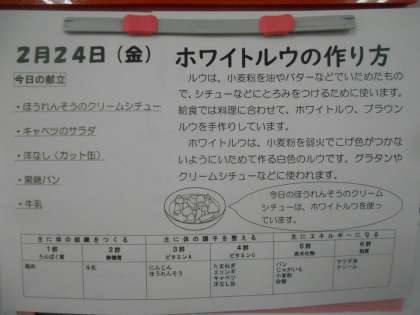 2月24日（金）
ホワイトルウの作り方
今日の献立
・ほうれんそうのクリームシチュー
・キャベツのサラダ
・洋なし（カット缶）
・黒糖パン
・牛乳
ルウは、小麦粉を油やバターなどでいためたもの
で、シチューなどにとろみをつけるために使います。
給食では料理に合わせて、ホワイトルウ、ブラウン
ルウを手作りしています。
ホワイトルウは、小麦粉を弱火でこげ色がつかな
いようにいためて作る白色のルウです。グラタンや
クリームシチューなどに使われます。
今日のほうれんそうのクリーム
シチューは、ホワイトルウを使っ
ています。
主に体の組織をつくる 主に体の調子を整える 主にエネルギーになる
1群 2群 3群 4群 5群 6群
たんぱく質 無機質 ビタミンA ビタミンC 炭水化物 脂肪
鶏肉 牛乳 にんじん たまねぎ パン サラダ油
ほうれんそう エリンギ じゃがいも クリーム
キャベツ 小麦粉
洋なし缶 砂糖